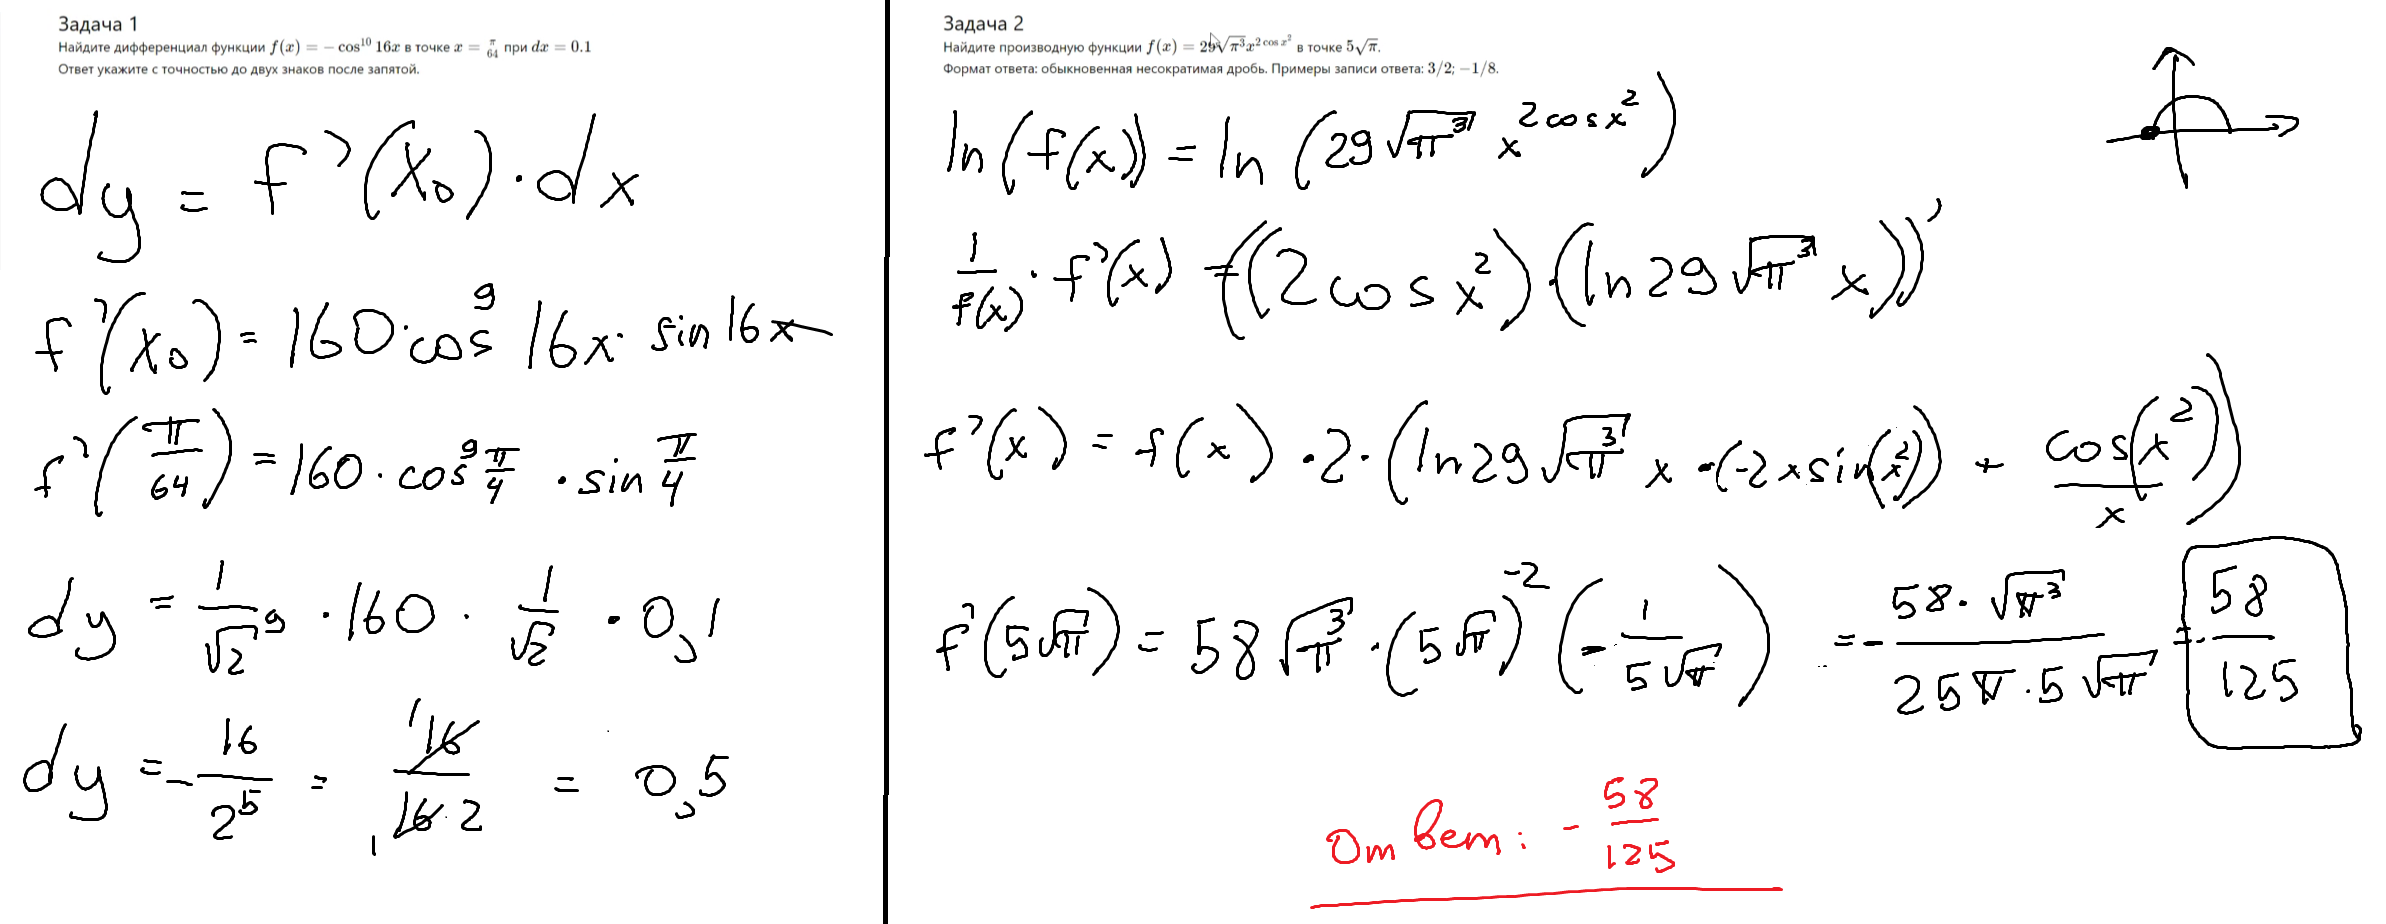 Задача 1
Найдите дифференциал функции f(x) = − cos¹⁰ 16x в точке x = π/64 при dx = 0.1
Ответ укажите с точностью до двух знаков после запятой.
dy = f'(x₀)·dx
f'(x₀) = 160·cos⁹ 16x· sin 16x
f'(π/64) = 160· cos⁹ π/4 · sin π/4
dy = 1/√2⁹ · 160 · 1/√2 · 0,1
dy = - 16/2⁵ = 16/16·2 = 0,5
Задача 2
Найдите производную функции f(x) = 29√π³x^(2 cos x²) в точке 5√π.
Формат ответа: обыкновенная несократимая дробь. Примеры записи ответа: 3/2; −1/8.
ln(f(x)) = ln (29√π³ x^(2cosx²))
1/f(x) · f'(x) = ((2cos x²)·(ln29√π³ x))'
f'(x) = f(x)·2·(ln29√π³ x ·(-2xsin(x²)) + cos(x²)/x)
f'(5√π) = 58√π³ ·(5√π)⁻² (- 1/5√π) = - 58·√π³/25π·5√π = - 58/125
Ответ: - 58/125